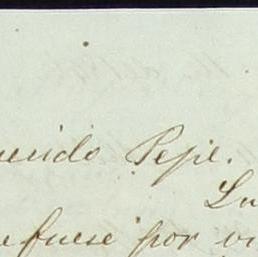 uerido Pepe.
Lu
efuese por vi